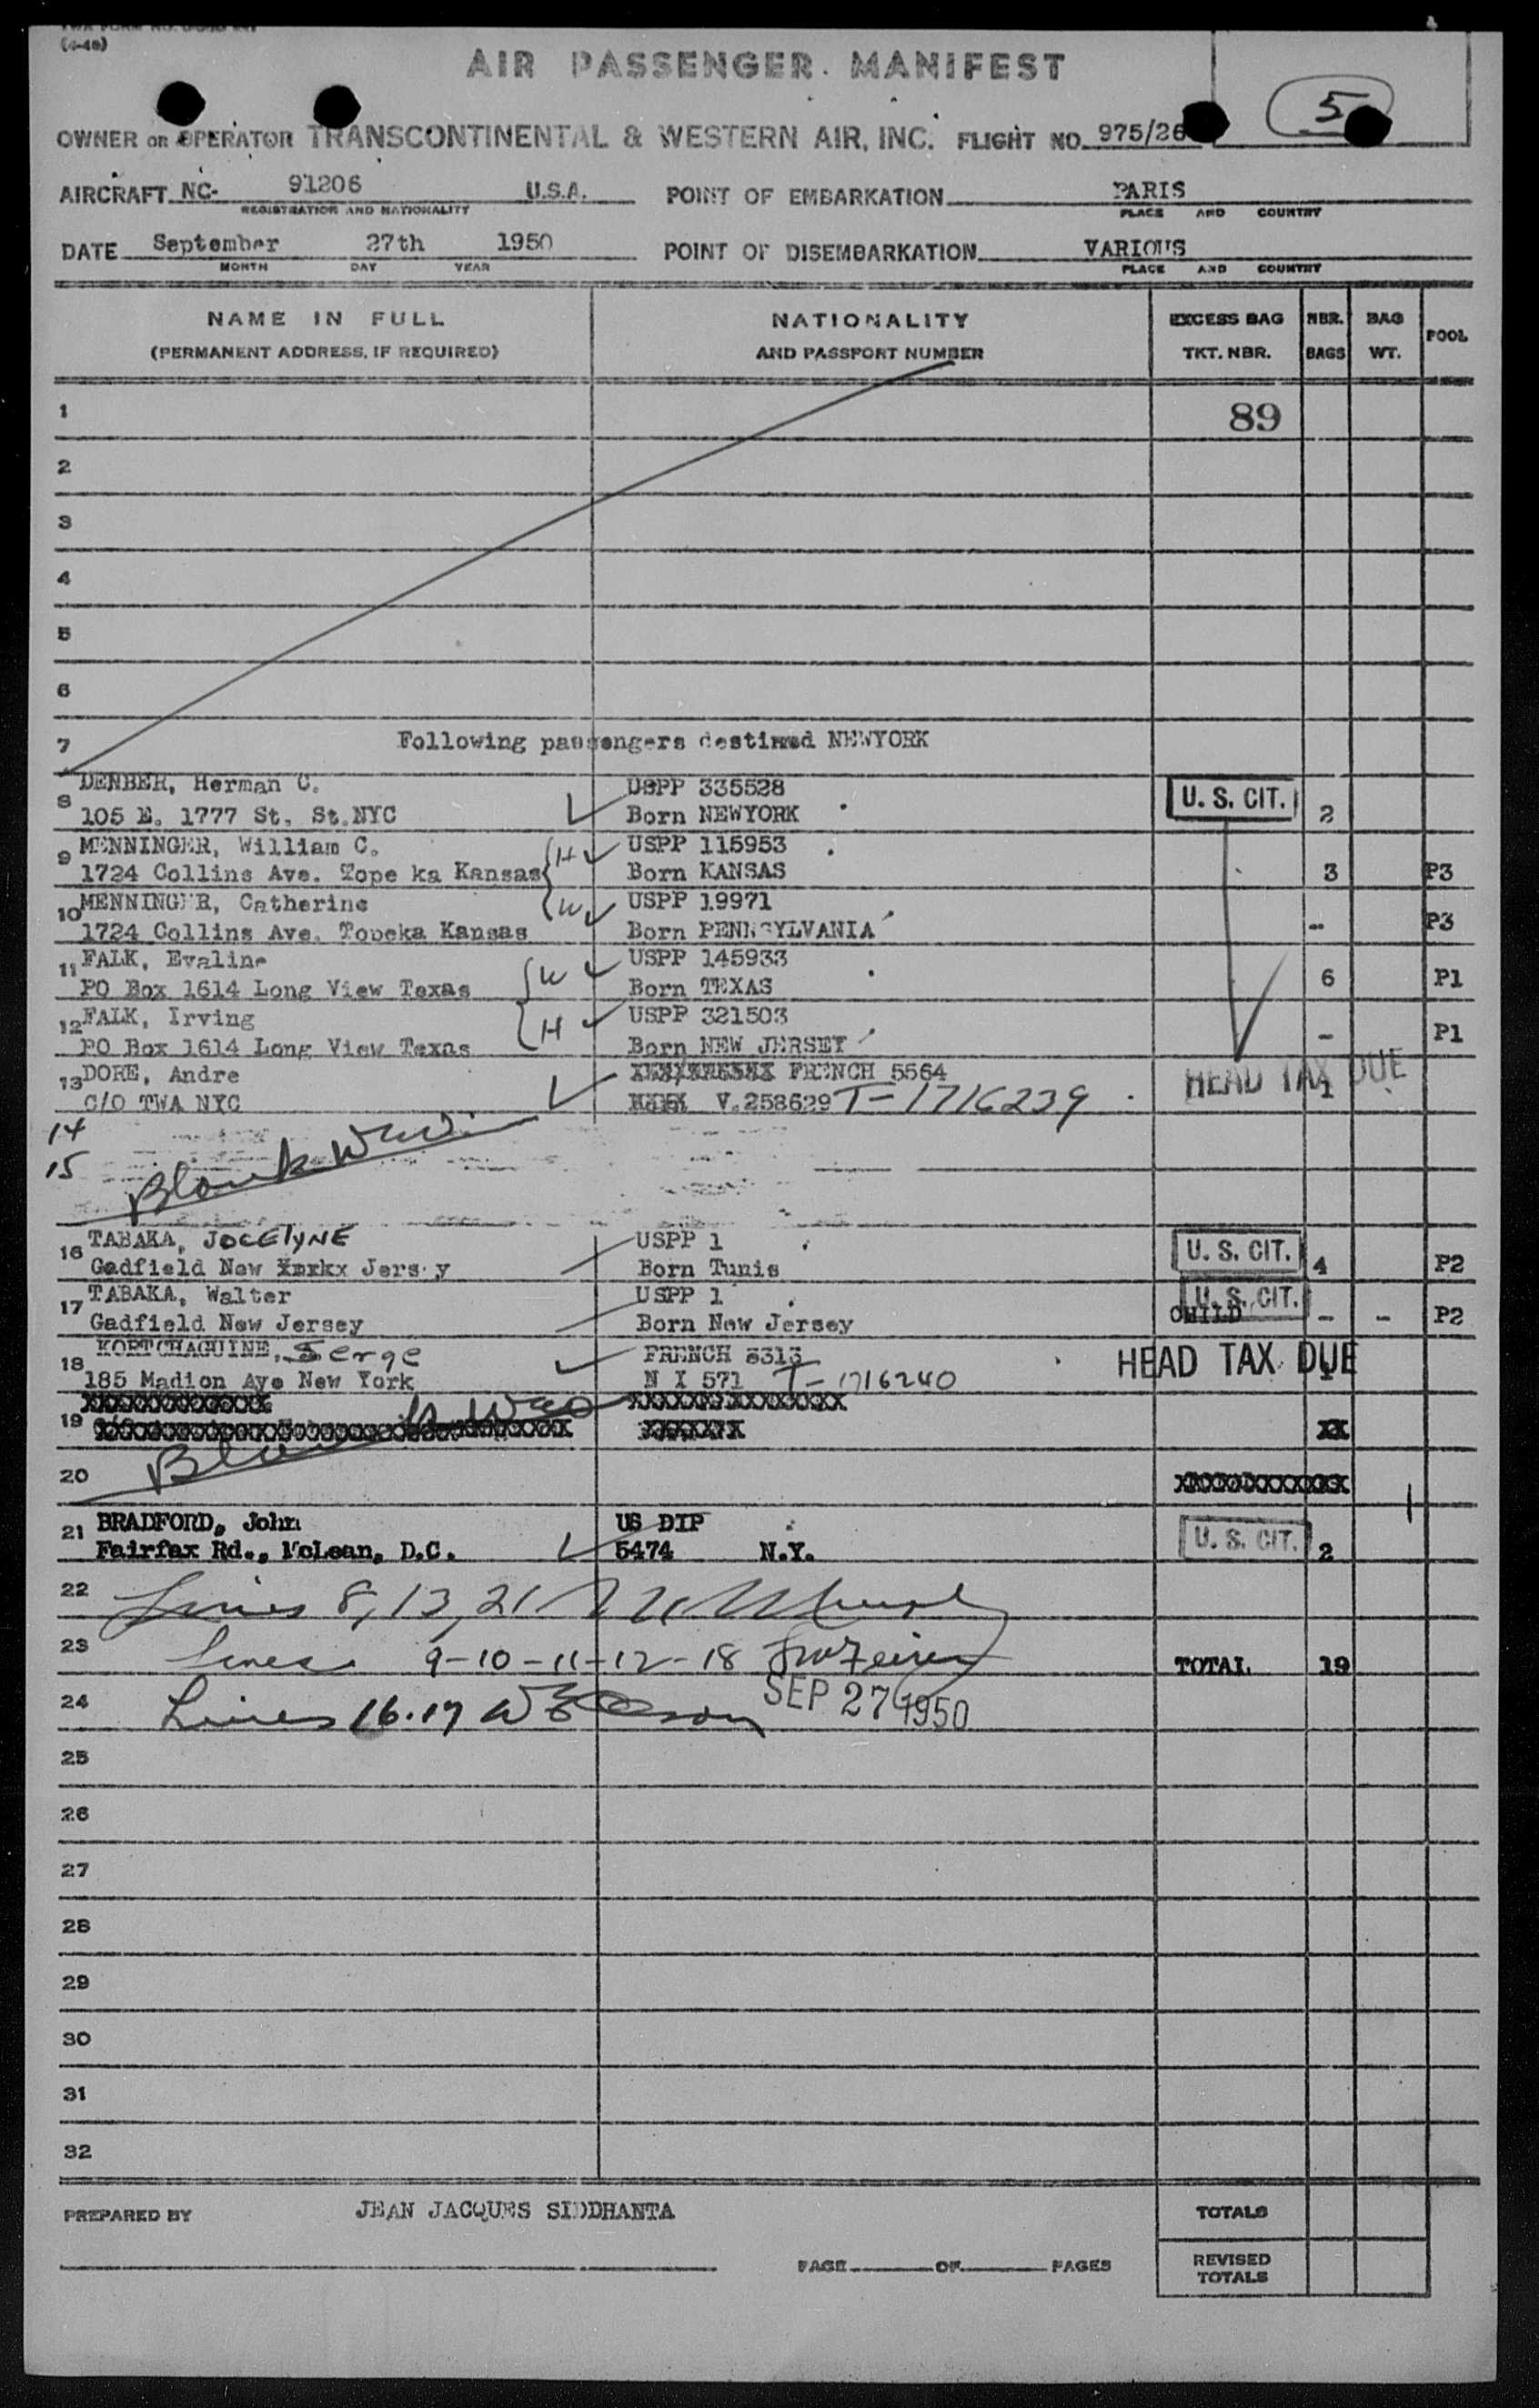 (4-48)
AIR PASSENGER MANIFEST
5
OWNER OR OPERATOR TRANSCONTINENTAL & WESTERN AIR, INC. FLIGHT NO. 975/26
AIRCRAFT NC- 91206 U.S.A. POINT OF EMBARKATION PARIS
REGISTRATION AND NATIONALITY PLACE AND COUNTRY
DATE September 27th 1950 POINT OF DISEMBARKATION VARIOUS
MONTH DAY YEAR PLACE AND COUNTRY
NAME IN FULL NATIONALITY EXCESS BAG NBR. BAG POOL
(PERMANENT ADDRESS, IF REQUIRED) AND PASSPORT NUMBER TKT. NBR. BAGS WT.
1 89
2
3
4
5
6
7 Following passengers destined NEWYORK
DENBER, Herman C. USPP 335528 U. S. CIT.
8 105 E. 1777 St. St.NYC Born NEWYORK 2
9 MENNINGER, William C. H USPP 115953
1724 Collins Ave. Tope ka Kansas Born KANSAS 3 P3
10 MENNINGER, Catherine W USPP 19971
1724 Collins Ave. Topeka Kansas Born PENNSYLVANIA - P3
11 FALK, Evaline W USPP 145933
PO Box 1614 Long View Texas Born TEXAS 6 P1
12 FALK, Irving H USPP 321503
PO Box 1614 Long View Texas Born NEW JERSEY - P1
13 DORE, Andre FRENCH 5564 HEAD TAX DUE
C/O TWA NYC V.258629 T-1716239 1
14
15 Blank
16 TABAKA, JOCELYNE USPP 1 U. S. CIT.
Gadfield New Jersey Born Tunis 4 P2
17 TABAKA, Walter USPP 1 U. S. CIT.
Gadfield New Jersey Born New Jersey CHILD - - P2
18 KORTCHAGUINE, Serge FRENCH 3313 HEAD TAX DUE
185 Madion Aye New York N I 571 T-1716240 1
19 XX
20 Blank
21 BRADFORD, John US DIP U. S. CIT.
Fairfax Rd., McLean, D.C. 5474 N.Y. 2
22 Lines 8, 13, 21
23 Lines 9-10-11-12-18 TOTAL 19
24 Lines 16.17 SEP 27 1950
25
26
27
28
29
30
31
32
PREPARED BY JEAN JACQUES SIDDHANTA TOTALS
PAGE OF PAGES REVISED
TOTALS